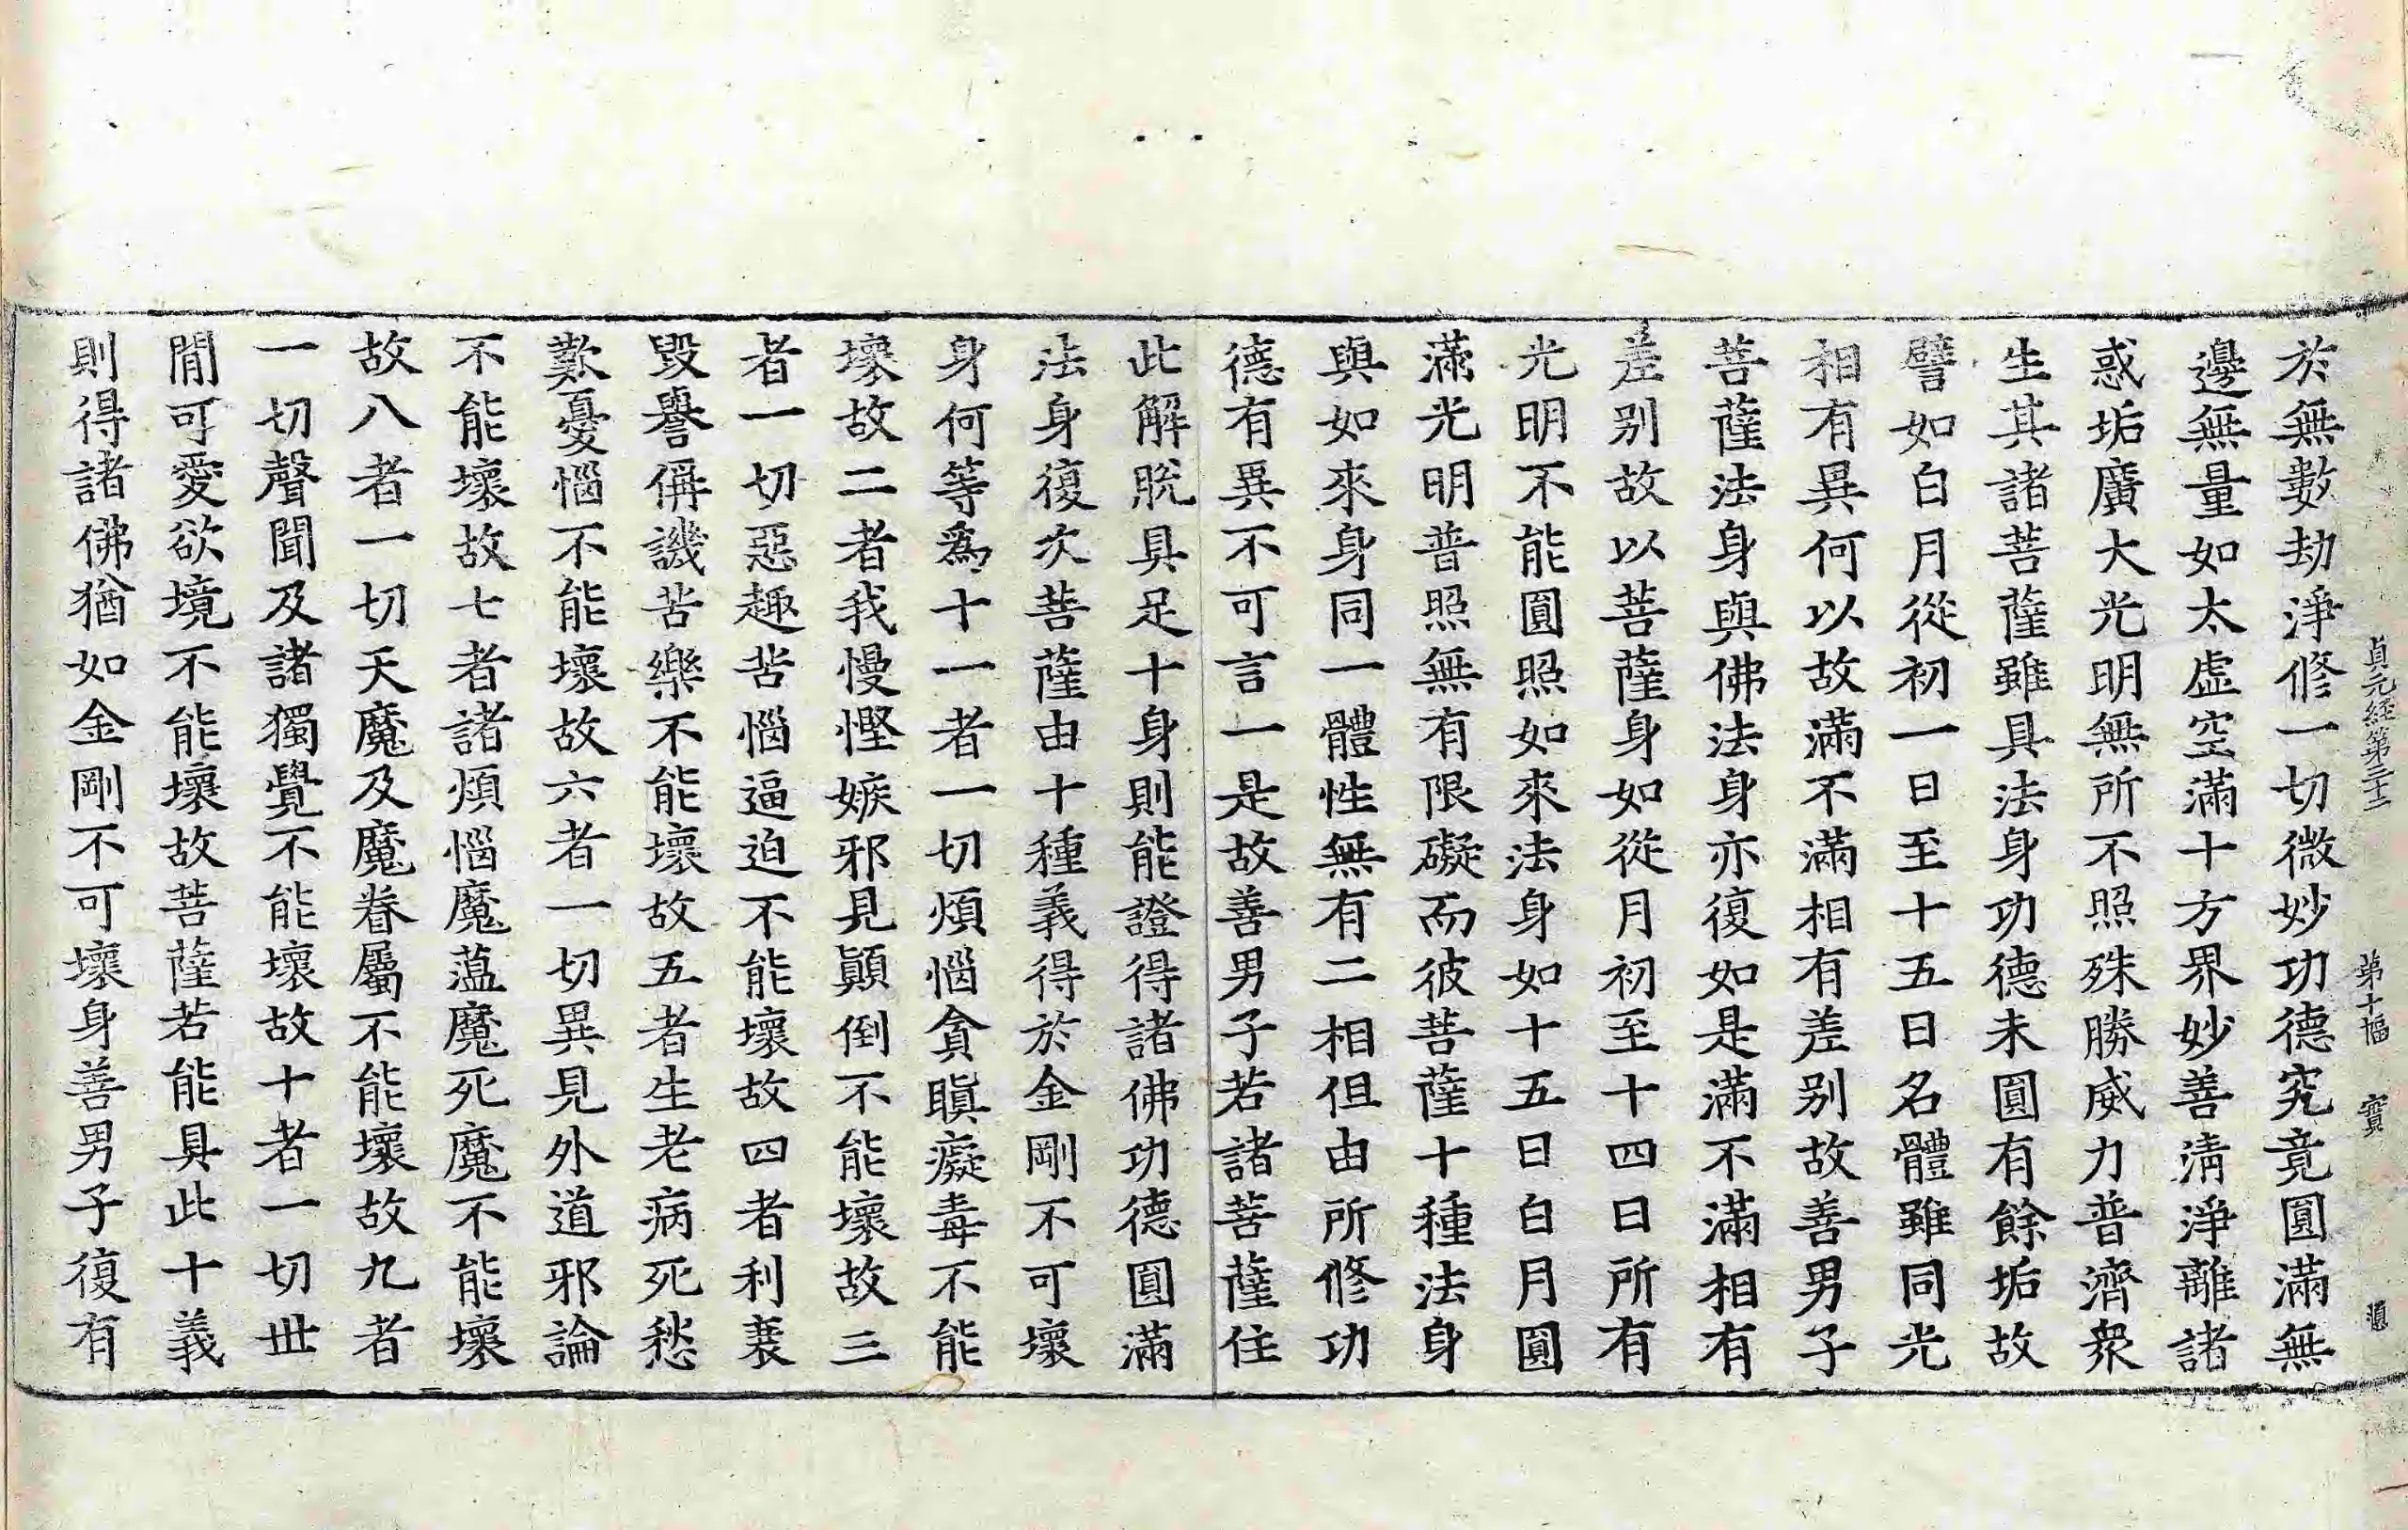 貞元經第三十二 第十幅 寶
於無數劫淨修一切微妙功德究竟圓滿無
邊無量如太虛空滿十方界妙善清淨離諸
惑垢廣大光明無所不照殊勝威力普濟衆
生其諸菩薩雖具法身功德未圓有餘垢故
譬如白月從初一日至十五日名體雖同光
相有異何以故滿不滿相有差别故善男子
菩薩法身與佛法身亦復如是滿不滿相有
差别故以菩薩身如從月初至十四日所有
光明不能圓照如來法身如十五日白月圓
滿光明普照無有限礙而彼菩薩十種法身
與如來身同一體性無有二相但由所修功
德有異不可言一是故善男子若諸菩薩住
此解脫具足十身則能證得諸佛功德圓滿
法身復次菩薩由十種義得於金剛不可壞
身何等爲十一者一切煩惱貪瞋癡毒不能
壞故二者我慢慳嫉邪見顚倒不能壞故三
者一切惡趣苦惱逼迫不能壞故四者利衰
毀譽稱譏苦樂不能壞故五者生老病死愁
歎憂惱不能壞故六者一切異見外道邪論
不能壞故七者諸煩惱魔藴魔死魔不能壞
故八者一切天魔及魔眷屬不能壞故九者
一切聲聞及諸獨覺不能壞故十者一切世
閒可愛欲境不能壞故菩薩若能具此十義
則得諸佛猶如金剛不可壞身善男子復有